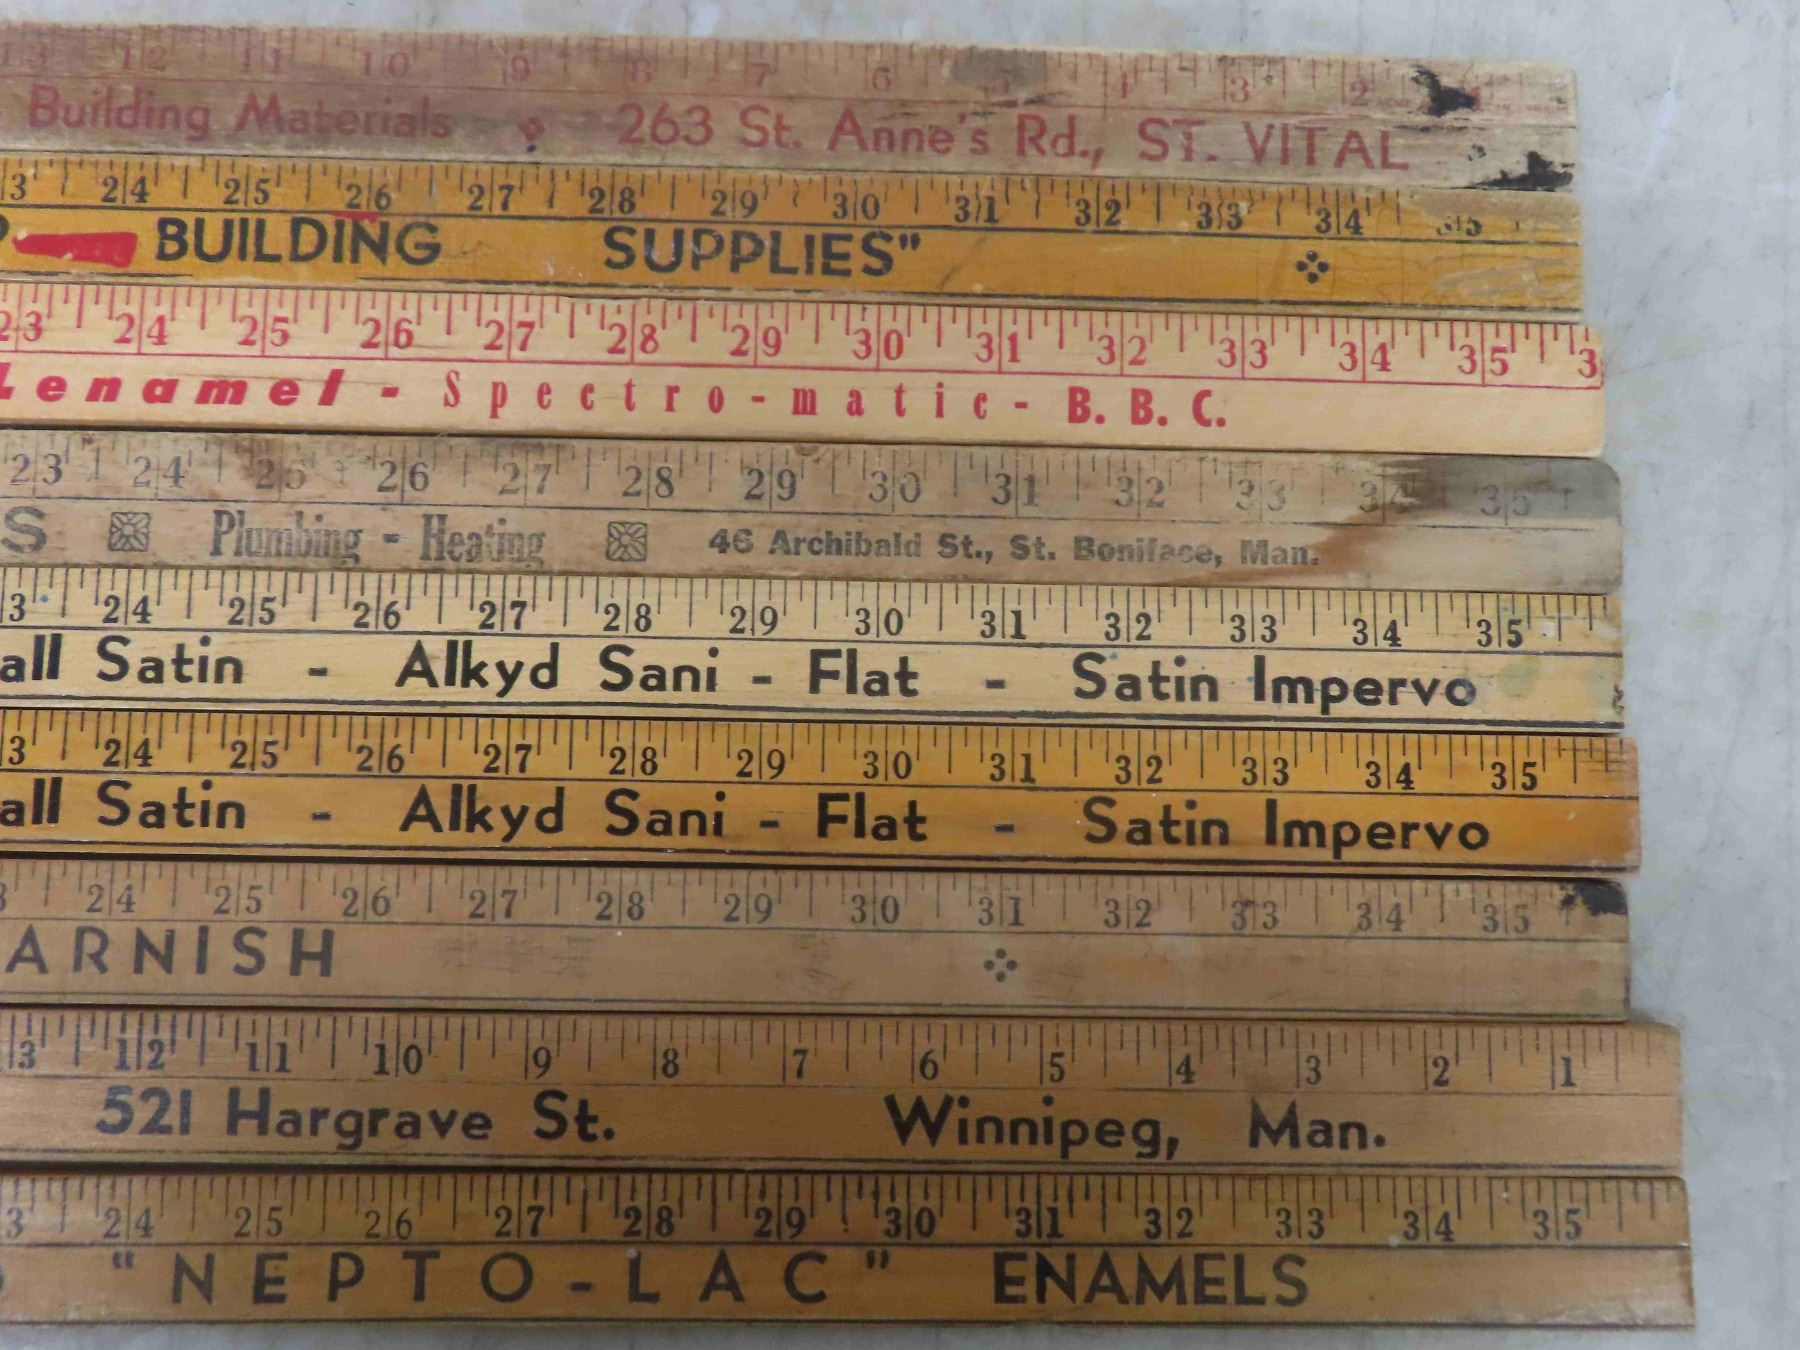 13 12 11 10 9 8 7 6 5 4 3 2 1
Building Materials 263 St. Anne's Rd., ST. VITAL
3 24 25 26 27 28 29 30 31 32 33 34 35
BUILDING SUPPLIES"
23 24 25 26 27 28 29 30 31 32 33 34 35 3
enamel - Spectro-matic- B. B. C.
23 24 25 26 27 28 29 30 31 32 33 34 35
S Plumbing - Heating 46 Archibald St., St. Boniface, Man.
3 24 25 26 27 28 29 30 31 32 33 34 35
all Satin - Alkyd Sani - Flat - Satin Impervo
3 24 25 26 27 28 29 30 31 32 33 34 35
all Satin - Alkyd Sani - Flat - Satin Impervo
3 24 25 26 27 28 29 30 31 32 33 34 35
ARNISH
13 12 11 10 9 8 7 6 5 4 3 2 1
521 Hargrave St. Winnipeg, Man.
3 24 25 26 27 28 29 30 31 32 33 34 35
"NEPTO-LAC" ENAMELS